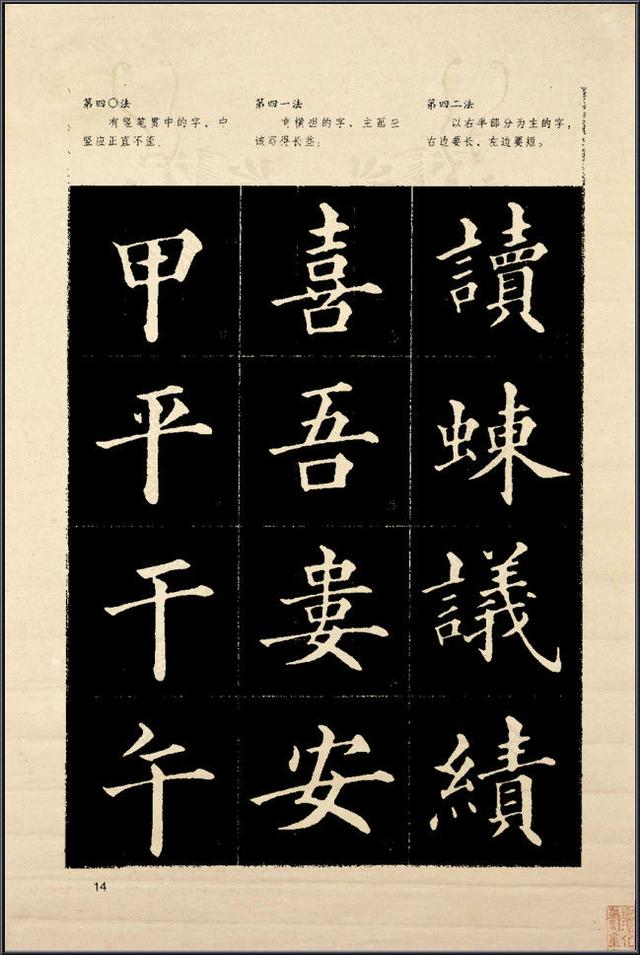 第四〇法
有竖笔贯中的字，中
竖应正直不歪。
第四一法
有横担的字，主画应
该写得长些。
第四二法
以右半部分为主的字，
右边要长，左边要短。
甲
平
干
午
喜
吾
娄
安
讀
蝀
議
績
14